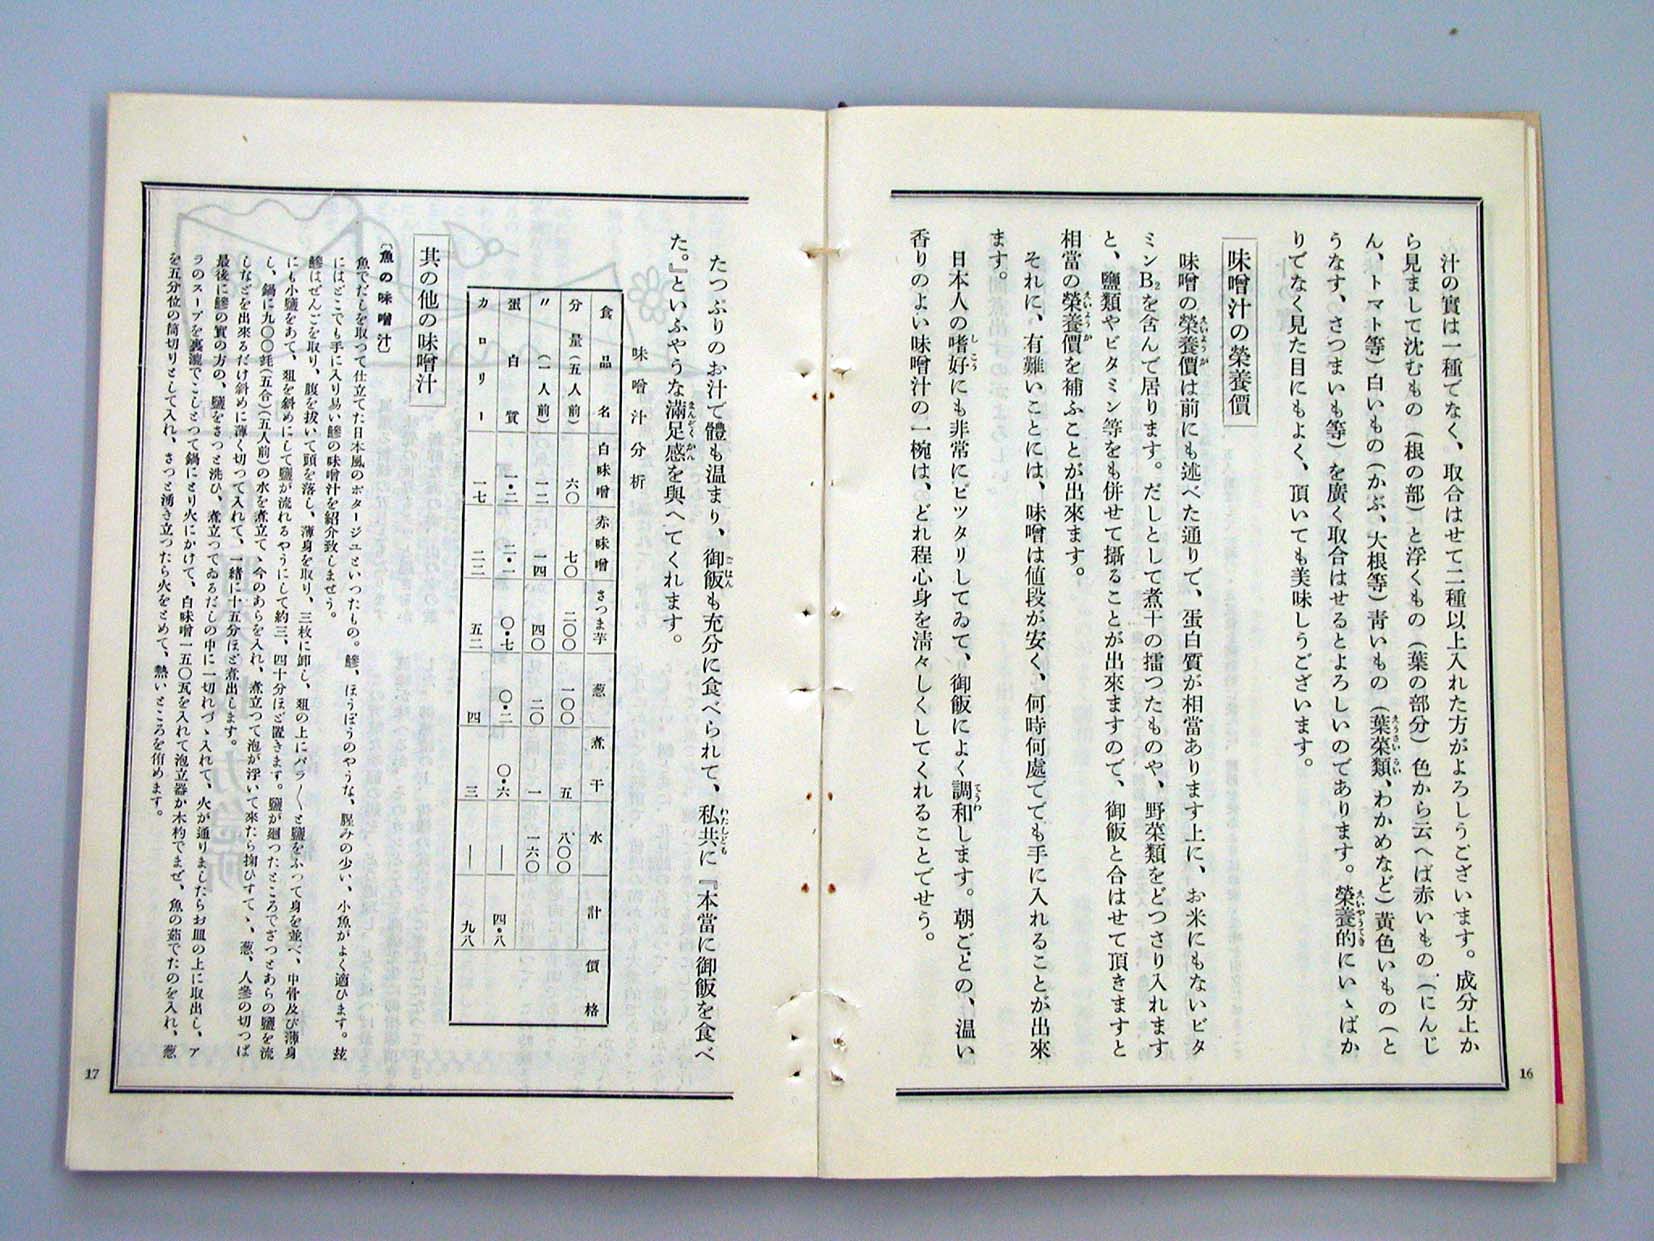 汁の實は一種でなく、取合はせて二種以上入れた方がよろしうございます。成分上か
ら見まして沈むもの（根の部）と浮くもの（葉の部分）色から云へば赤いもの、（にんじ
ん、トマト等）白いもの（かぶ、大根等）青いもの（葉菜類、わかめなど）黄色いもの（と
うなす、さつまいも等）を廣く取合はせるとよろしいのであります。榮養的にいゝばか
りでなく見た目にもよく、頂いても美味しうございます。
味噌汁の榮養價
味噌の榮養價は前にも述べた通りで、蛋白質が相當あります上に、お米にもないビタ
ミンB₂を含んで居ります。だしとして煮干の擂つたものや、野菜類をどつさり入れます
と、鹽類やビタミン等をも併せて攝ることが出來ますので、御飯と合はせて頂きますと
相當の榮養價を補ふことが出來ます。
それに、有難いことには、味噌は値段が安く、何時何處ででも手に入れることが出來
ます。
日本人の嗜好にも非常にピツタリしてゐて、御飯によく調和します。朝ごとの、温い
香りのよい味噌汁の一椀は、どれ程心身を淸々しくしてくれることでせう。
16
たつぷりのお汁で體も温まり、御飯も充分に食べられて、私共に『本當に御飯を食べ
た。』といふやうな滿足感を與へてくれます。
味噌汁分析
食品名 白味噌 赤味噌 さつま芋 葱 煮干 水 計 價格
分量(五人前) 六〇 七〇 二〇〇 一〇〇 五 八〇〇
〃(一人前) 一二 一四 四〇 二〇 一 一六〇
蛋白質 一・二 二・一 〇・七 〇・二 〇・六 ― 四・八
カロリー 一七 二二 五二 四 三 ― 九八
其の他の味噌汁
〔魚の味噌汁〕
魚でだしを取つて仕立てた日本風のポタージユといつたもの。鰺、ほうぼうのやうな、腥みの少い、小魚がよく適ひます。玆
にはどこでも手に入り易い鰺の味噌汁を紹介致しませう。
鰺はぜんごを取り、腹を拔いて頭を落し、薄身を取り、三枚に卸し、俎の上にパラ〱と鹽をふつて身を並べ、中骨及び薄身
にも小鹽をあて、俎を斜めにして鹽が流れるやうにして約三、四十分ほど置きます。鹽が廻つたところでざつとあらの鹽を流
し、鍋に九〇〇竓(五合)(五人前)の水を煮立てゝ今のあらを入れ、煮立つて泡が浮いて來たら掬ひすてゝ、葱、人參の切つぱ
しなどを出來るだけ斜めに薄く切つて入れて、一緖に十五分ほど煮出します。
最後に鰺の實の方の、鹽をさつと洗ひ、煮立つてゐるだしの中に一切れづゝ入れて、火が通りましたらお皿の上に取出し、ア
ラのスープを裏漉でこしとつて鍋にとり火にかけて、白味噌一五〇瓦を入れて泡立器か木杓でまぜ、魚の茹でたのを入れ、葱
を五分位の筒切りとして入れ、さつと湧き立つたら火をとめて、熱いところを侑めます。
17